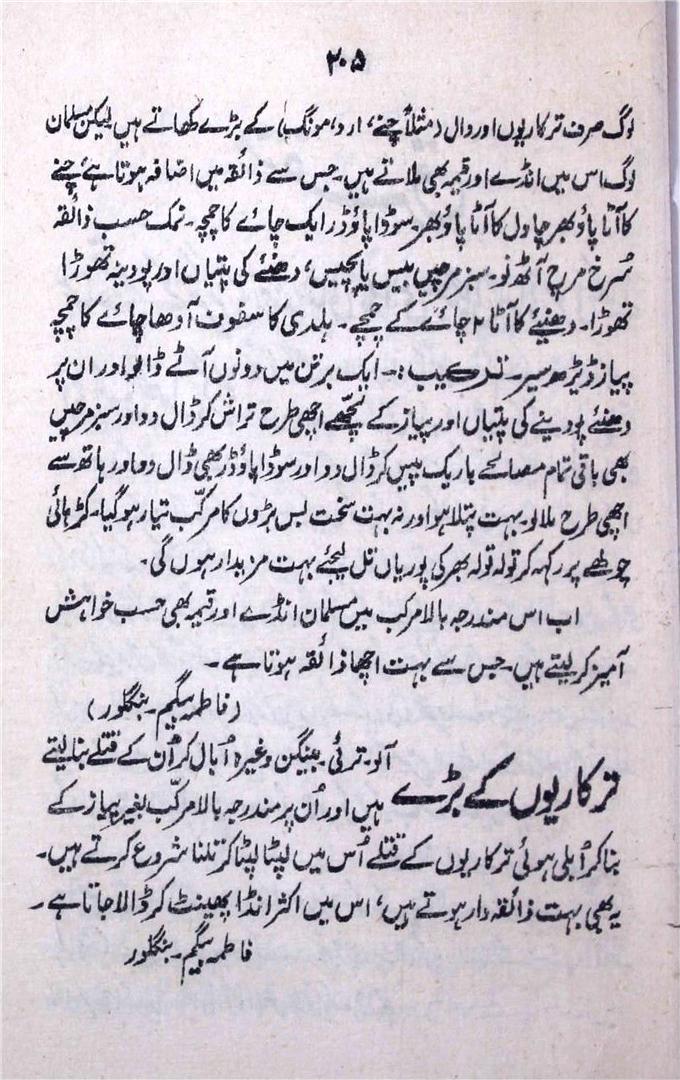 ۲۰۵
لوگ صرف ترکاریوں اور دال (مثلاً چنے، ارد، مونگ) کے بڑے کھاتے ہیں لیکن مسلمان
لوگ اس میں انڈے اور قیمہ بھی ملاتے ہیں۔ جس سے ذائقہ میں اضافہ ہوتا ہے، چنے
کا آٹا پاؤ بھر چاول کا آٹا پاؤ بھر۔ سوڈا پاؤڈر ایک چائے کا چمچہ۔ نمک حسب ذائقہ
سُرخ مرچ آٹھ نو۔ سبز مرچیں بیس پچیس، دھنئے کی پتیاں اور پودینہ تھوڑا
تھوڑا۔ دھنیئے کا آٹا ۲ چائے کے چمچے۔ ہلدی کا سفوف آدھا چائے کا چمچہ
پیاز ڈیڑھ سیر۔ ترکیب :۔ ایک برتن میں دونوں آٹے ڈالو اور ان پر
دھنئے پودینے کی پتیاں اور پیاز کے لچھے اچھی طرح تراش کر ڈال دو اور سبز مرچیں
بھی باقی تمام مصالحے باریک پیس کر ڈال دو اور سوڈا پاؤڈر بھی ڈال دو اور ہاتھ سے
اچھی طرح ملالو۔ بہت پتلا ہو اور نہ بہت سخت بس بڑوں کا مرکّب تیار ہو گیا۔ کڑہائی
چولھے پر رکھ کر تولہ تولہ بھر کی پوریاں تل لیجئے بہت مزیدار ہوں گی۔
اب اس مندرجہ بالا مرکب میں مسلمان انڈے اور قیمہ بھی حسب خواہش
آمیز کر لیتے ہیں۔ جس سے بہت اچھا ذائقہ ہوتا ہے۔
(فاطمہ بیگم۔ بنگلور)
ترکاریوں کے بڑے آلو۔ ترئی۔ بینگن وغیرہ اُبال کر اُن کے قتلے بنا لیتے
ہیں اور اُن پر مندرجہ بالا مرکّب بغیر پیاز کے
بنا کر اُبلی ہوئی ترکاریوں کے قتلے اُس میں لپٹا لپٹا کر تلنا شروع کرتے ہیں۔
یہ بھی بہت ذائقہ دار ہوتے ہیں، اس میں اکثر انڈا پھینٹ کر ڈالا جاتا ہے۔
فاطمہ بیگم۔ بنگلور